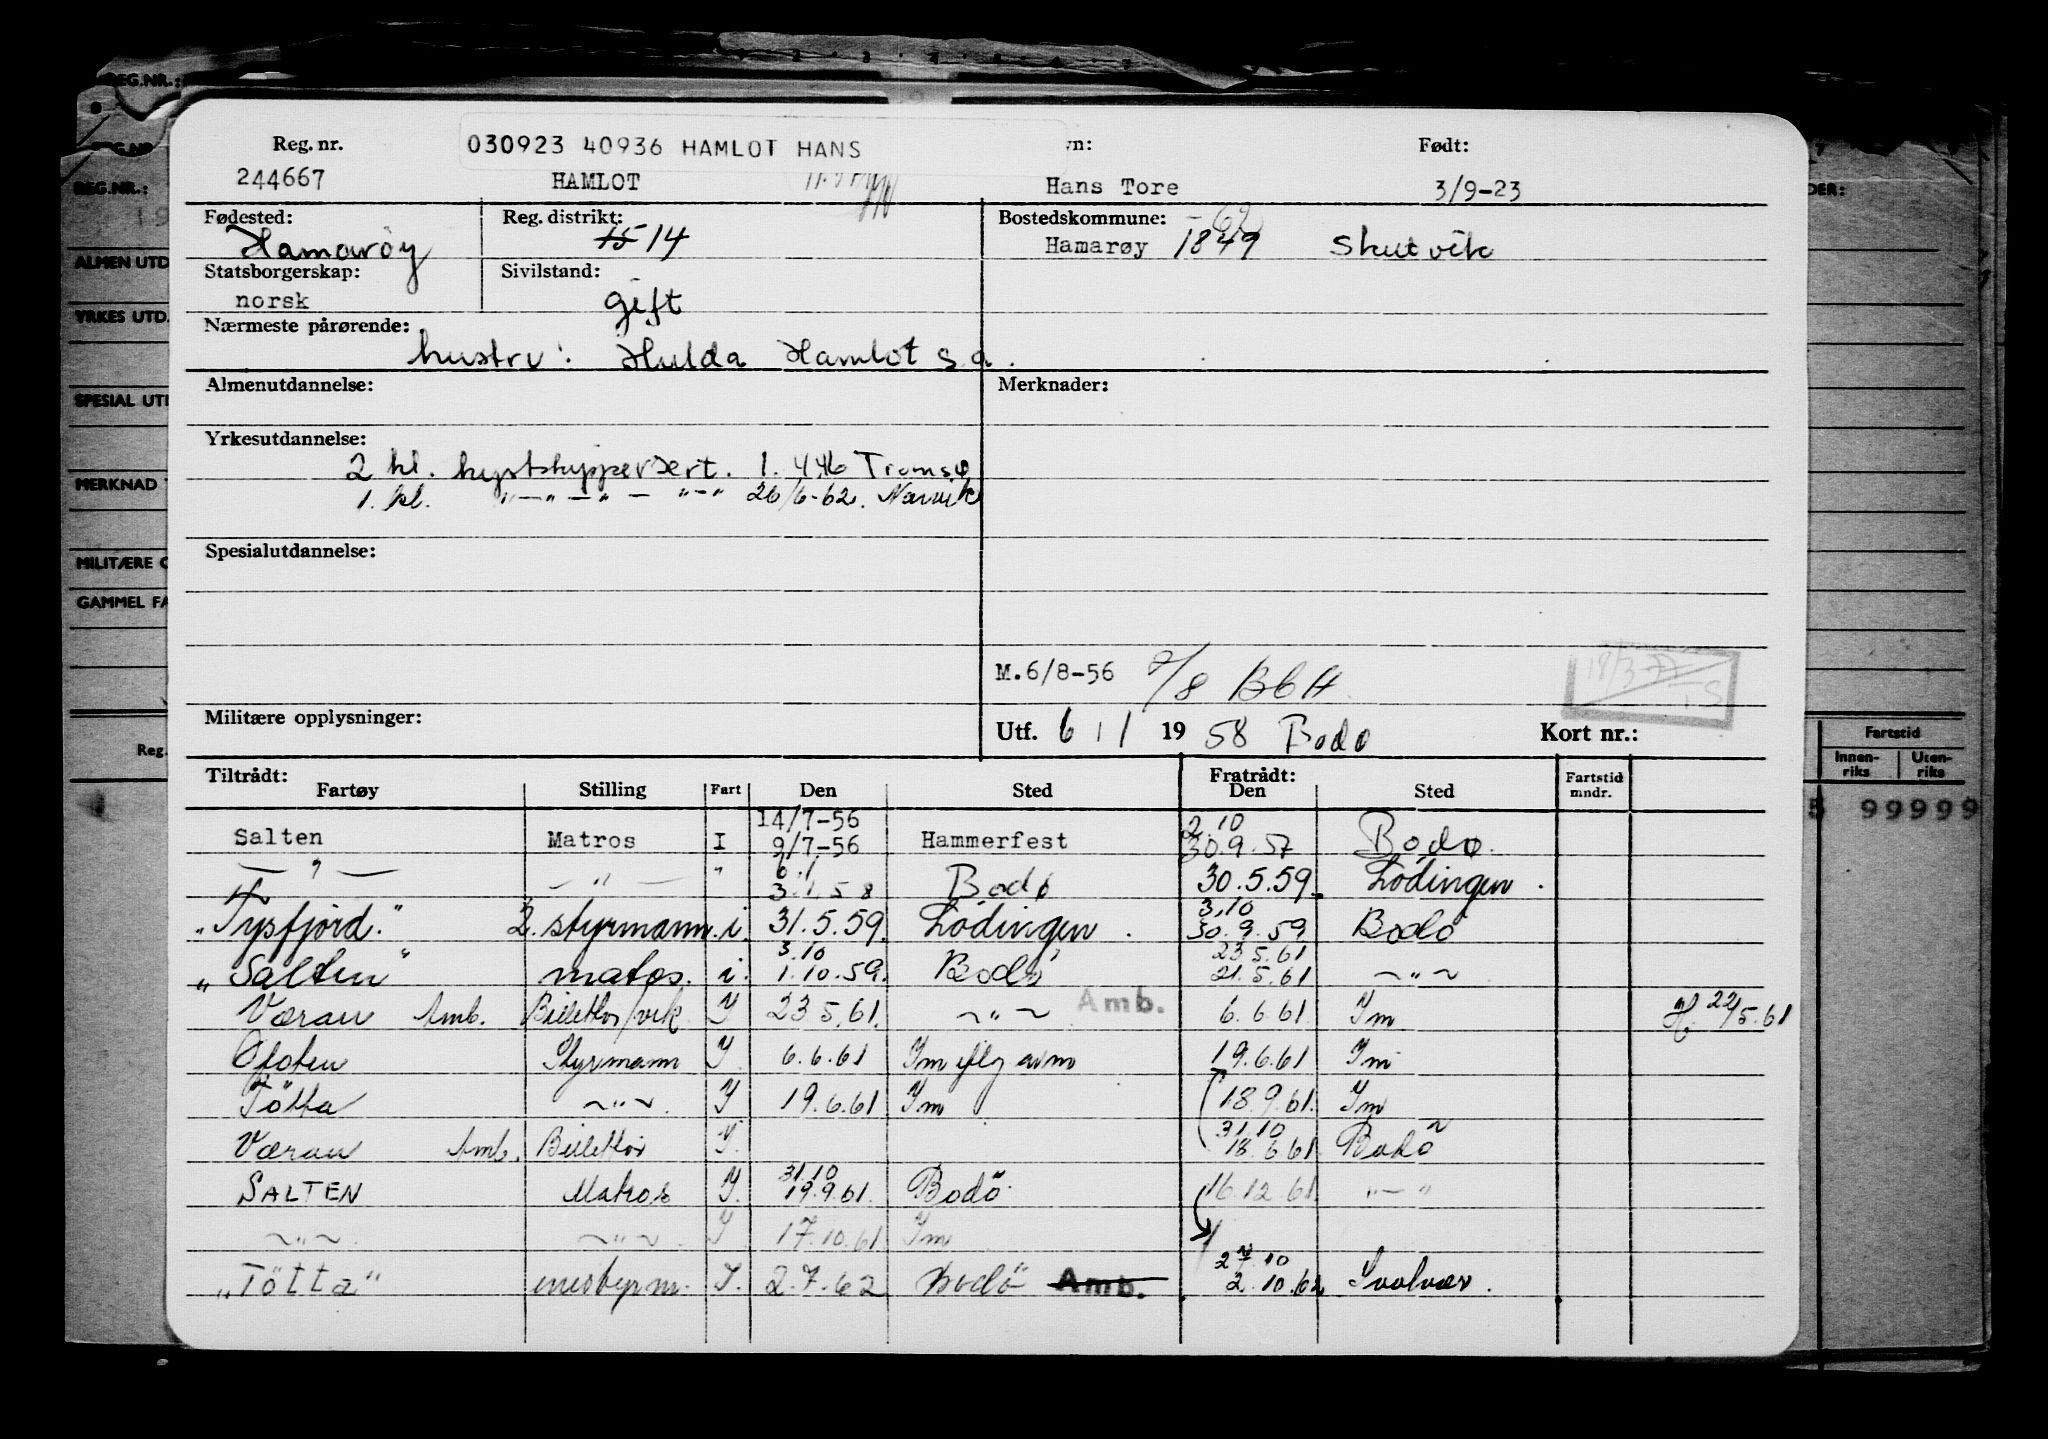 REG.NR.:
REG.NR.:
ALMEN UTD
YRKES UTD.
SPESIAL UTI
MERKNAD
MILITÆRE O
GAMMEL FA
Reg.
Reg. nr. 030923 40936 HAMLOT HANS vn: Født:
244667 HAMLOT Hans Tore 3/9-23
Fødested: Reg. distrikt: Bostedskommune:
Hamarøy 15 14 Hamarøy 1849 Skutvik
Statsborgerskap: Sivilstand:
norsk gift
Nærmeste pårørende:
hustru: Hulda Hamlot s.a.
Almenutdannelse: Merknader:
Yrkesutdannelse:
2 kl. kystskippersert. 1. 4.46 Tromsø
1. kl. " — " — " — " — " 26/6-62. Narvik
Spesialutdannelse:
M.6/8-56 7/8 BCH
18/3-77
TS
Militære opplysninger: Utf. 6 / 1 19 58 Bodø Kort nr.:
Tiltrådt: Fratrådt:
Fartøy Stilling Fart Den Sted Den Sted Fartstid mndr.
14/7-56 2.10
Salten Matros I 9/7-56 Hammerfest 30.9.57 Bodø.
6.1
— " — — " — " 3.1.58 Bodø 30.5.59. Lödingen.
3.10
"Tysfjord." 2. styrmann. i. 31.5.59. Lödingen. 30.9.59 Bodö
3.10 23.5.61
"Salten" matos. i. 1.10.59. Bodö 21.5.61 ~ " ~
Væran Amb. Billettör/vik Y 23.5.61. ~ " ~ Amb. 6.6.61 Im H. 22/5.61
Ofoten Styrmann Y 6.6.61 Im 19.6.61 Im
Tötta ~ " ~ . Y 19.6.61 Im 18.9.61. Im
31.10
Væran Amb. Billettör Y. 18.6.61 Bodö
31.10
SALTEN Matros Y. 19.9.61. Bodö 16.12.61. " — "
~ " ~ ~ " ~ . Y 17.10.61 Im
27.10
"Tötta" I. 2.7.62 Bodö Amb. 2.10.62 Svolvær.
Fartstid
Innen-riks Uten-riks
5 99999